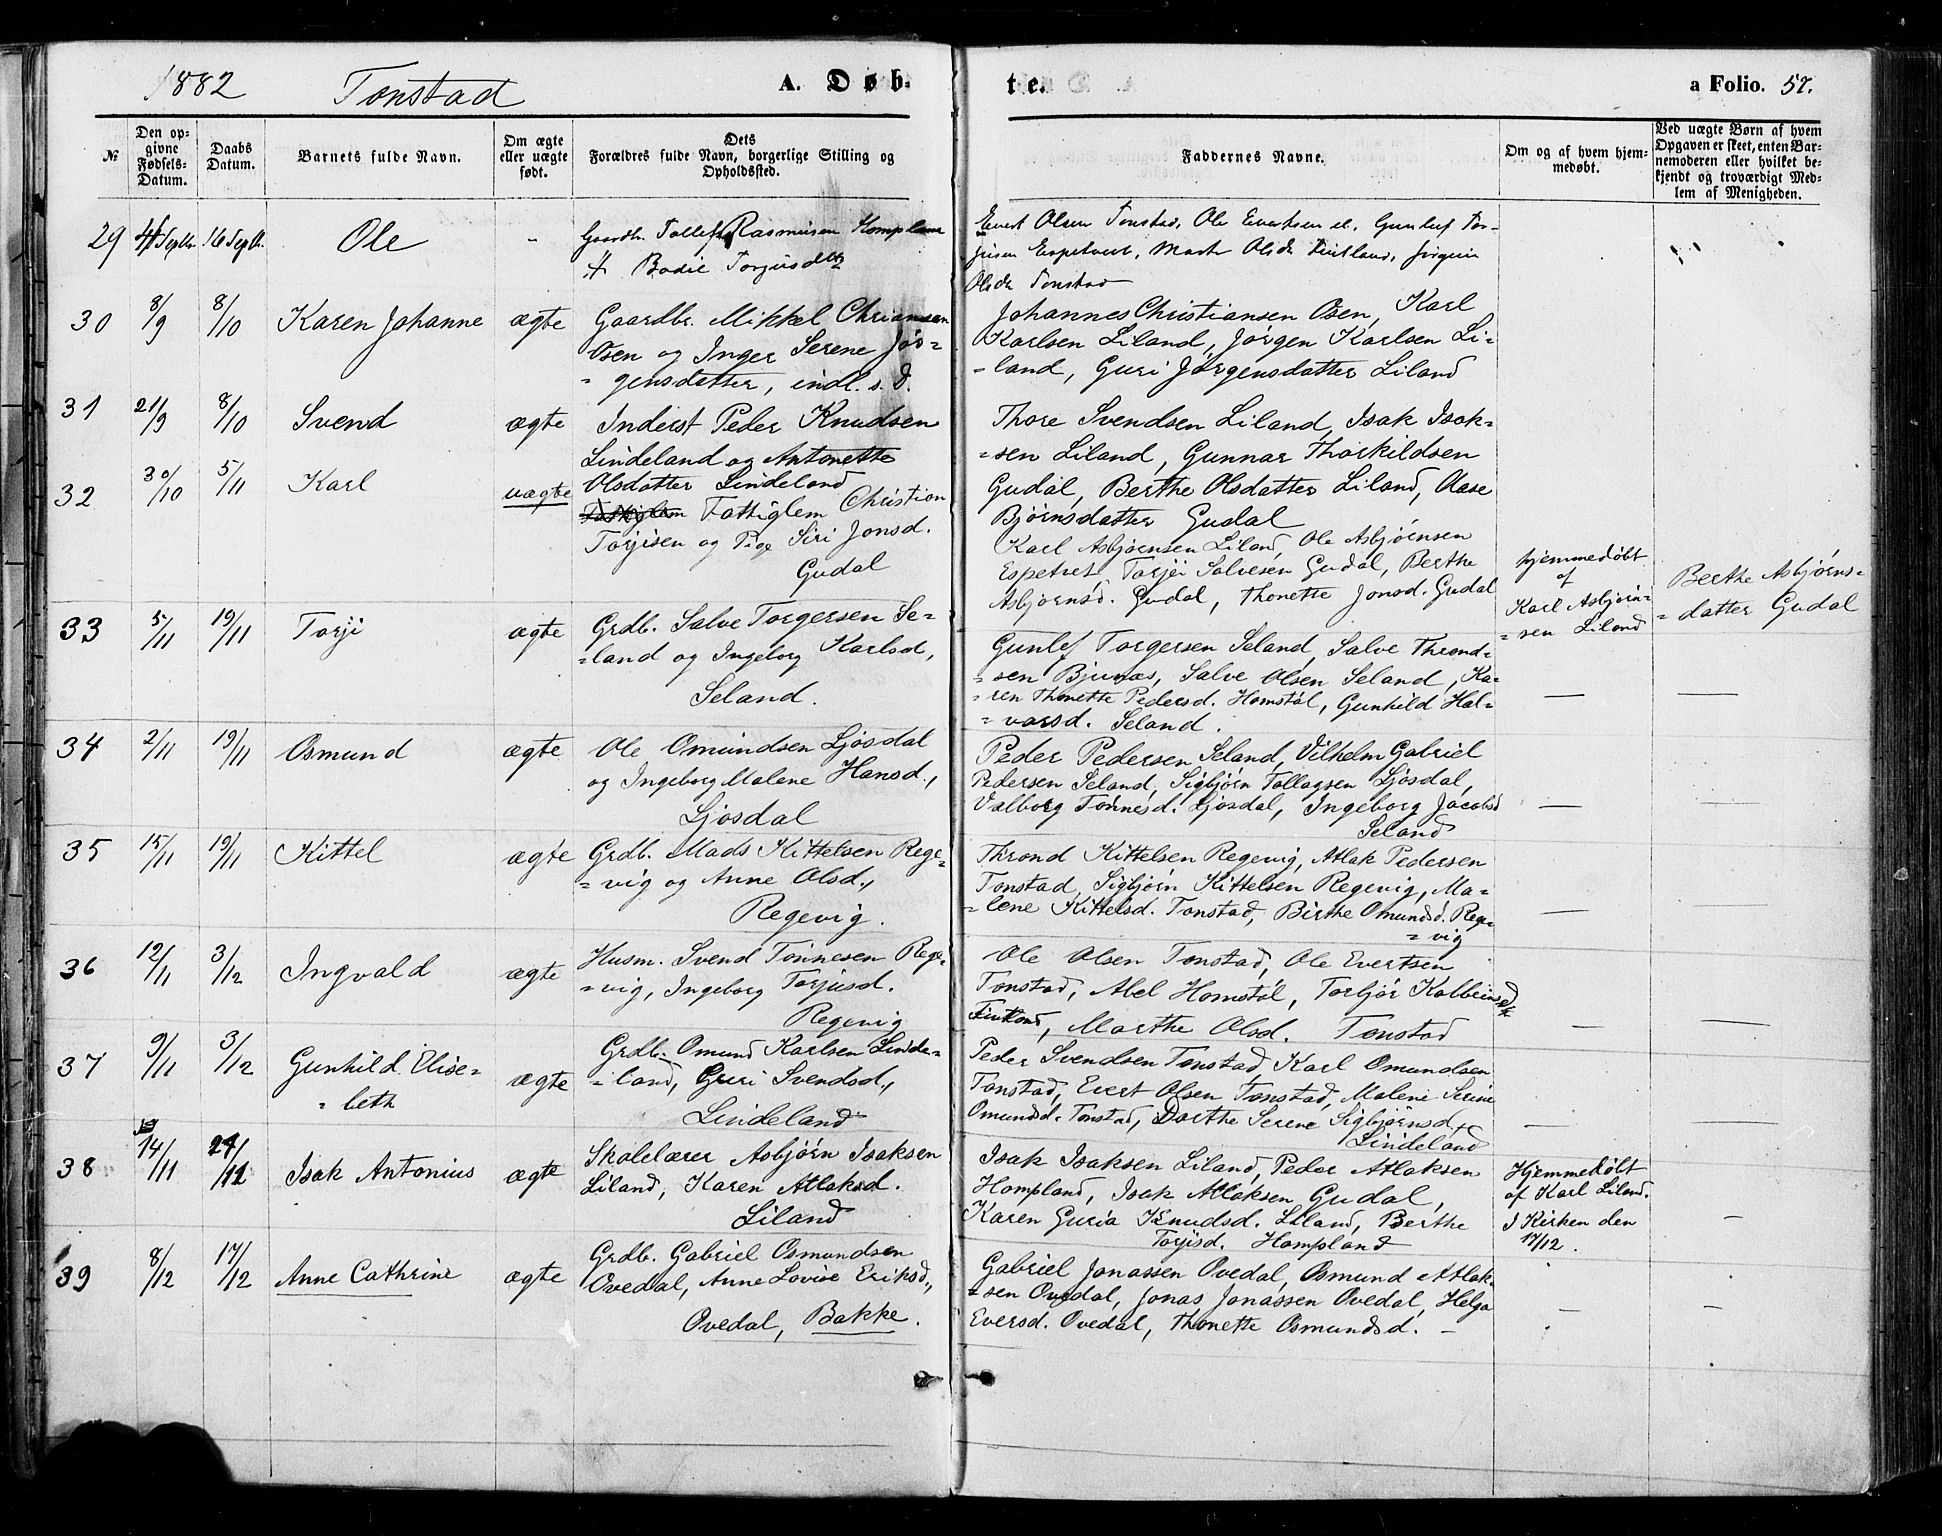 1882 Tonstad A. Døb-
te. a Folio. 57.
№
Den op-
givne
Fødsels-
Datum.
Daabs
Datum.
Barnets fulde Navn.
Om ægte
eller uægte
født.
Dets
Forældres fulde Navn, borgerlige Stilling og
Opholdssted.
Faddernes Navne.
Om og af hvem hjem-
medøbt.
Ved uægte Børn af hvem
Opgaven er skeet, enten Bar-
nemoderen eller hvilket be-
kjendt og troværdigt Med-
lem af Menigheden.
29 4 Septb. 16 Septb. Ole "
Gaardbr. Tollef Rasmusen Homplane
Bodil Torjusdtr
Evert Olsen Tonstad, Ole Evertsen st. Gunluf Tor-
jusen Espetveit, Marte Olsdt Fintland, Jørgine
Olsdt Tonstad
30 8/9 8/10 Karen Johanne ægte
Gaardbr. Mikkel Chriansen
Osen og Inger Serene Jør=
= gensdatter, indl. s. d.
Johannes Christiansen Osen, Karl
Karlsen Liland, Jørgen Karlsen Li=
=land, Guri Jørgensdatter Liland
31 21/9 8/10 Svend ægte
Inderst Peder Knudsen
Lindeland og Antonette
Olsdatter Lindeland
Thore Svendsen Liland, Isak Isak=
=sen Liland, Gunnar Thorkildsen
Gudal, Berthe Olsdatter Liland, Aase
Bjørnsdatter Gudal
32 30/10 5/11 Karl uægte
Fattiglem Christian
Torjisen og Pige Siri Jonsd.
Gudal
Karl Asbjørnsen Liland, Ole Asbjørnsen
Espetret, Torjei Salvesen Gudal, Berthe
Asbjørnsd. Gudal, Thonette Jonsd. Gudal
hjemmedøbt
af
Karl Asbjørn=
=sen Liland
Berthe Asbjørns=
=datter Gudal
33 5/11 19/11 Torji ægte
Grdb. Salve Torgersen Se=
=land og Ingeborg Karlsd,
Seland.
Gunlef Torgersen Seland, Salve Thrond=
=sen Bjunes, Salve Olsen Seland, Ka=
=ren Thonette Pedersd. Homstøl, Gunhild Hal=
=vorsd. Seland.
— —
34 2/11 19/11 Osmund ægte
Ole Omundsen Ljosdal
og Ingeborg Malene Hansd.,
Ljosdal
Peder Pedersen Seland, Vilhelm Gabriel
Pedersen Seland, Sigbjørn Tollagsen Ljosdal,
Valborg Tønnesd. Ljosdal, Ingeborg Jacobsd
Seland
— —
35 15/11 19/11 Kittel ægte
Grdb. Mads Kittelsen Rege=
=vig og Anne Olsd.,
Regevig.
Thrond Kittelsen Regevig, Atlak Pedersen
Tonstad, Sigbjørn Kittelsen Regevig, Ma=
=lene Kittelsd. Tonstad, Birthe Omundsd. Rege=
=vig
— —
36 12/11 3/12 Ingvald ægte
Husm. Svend Tønnesen Rege=
=vig, Ingeborg Torjusd.
Regevig
Ole Olsen Tonstad, Ole Evertsen
Tonstad, Abel Homstøl, Torbjør Kolbeinsd
Fintland, Marthe Olsd. Tonstad
— —
37 9/11 3/12 Gunhild Elise=
=beth ægte
Grdb. Omund Karlsen Linde=
=land, Guri Svendsd.,
Lindeland
Peder Svendsen Tonstad, Karl Omundsen
Tonstad, Evert Olsen Tonstad, Malene Serine
Omundsd. Tonstad, Dorthe Serene Sigbjørnsd.
Lindeland
— —
38 14/11 Isak Antonius ægte
Skolelærer Asbjørn Isaksen
Liland, Karen Atlaksd.
Liland
Isak Isaksen Liland, Peder Atlaksen
Hompland, Isak Atlaksen Gudal,
Karen Guria Knudsd. Liland, Berthe
Torjisd. Hompland
Hjemmedøbt
af Karl Liland.
I Kirken den
17/12.
—
39 8/12 17/12 Anne Cathrine ægte
Grdb. Gabriel Osmundsen
Ovedal, Anne Lovise Eriksd.,
Ovedal, Bakke.
Gabriel Jonassen Ovedal, Osmund Atlak=
=sen Ovedal, Jonas Jonassen Ovedal, Helga
Eversd. Ovedal, Thonette Osmundsd. —
— —